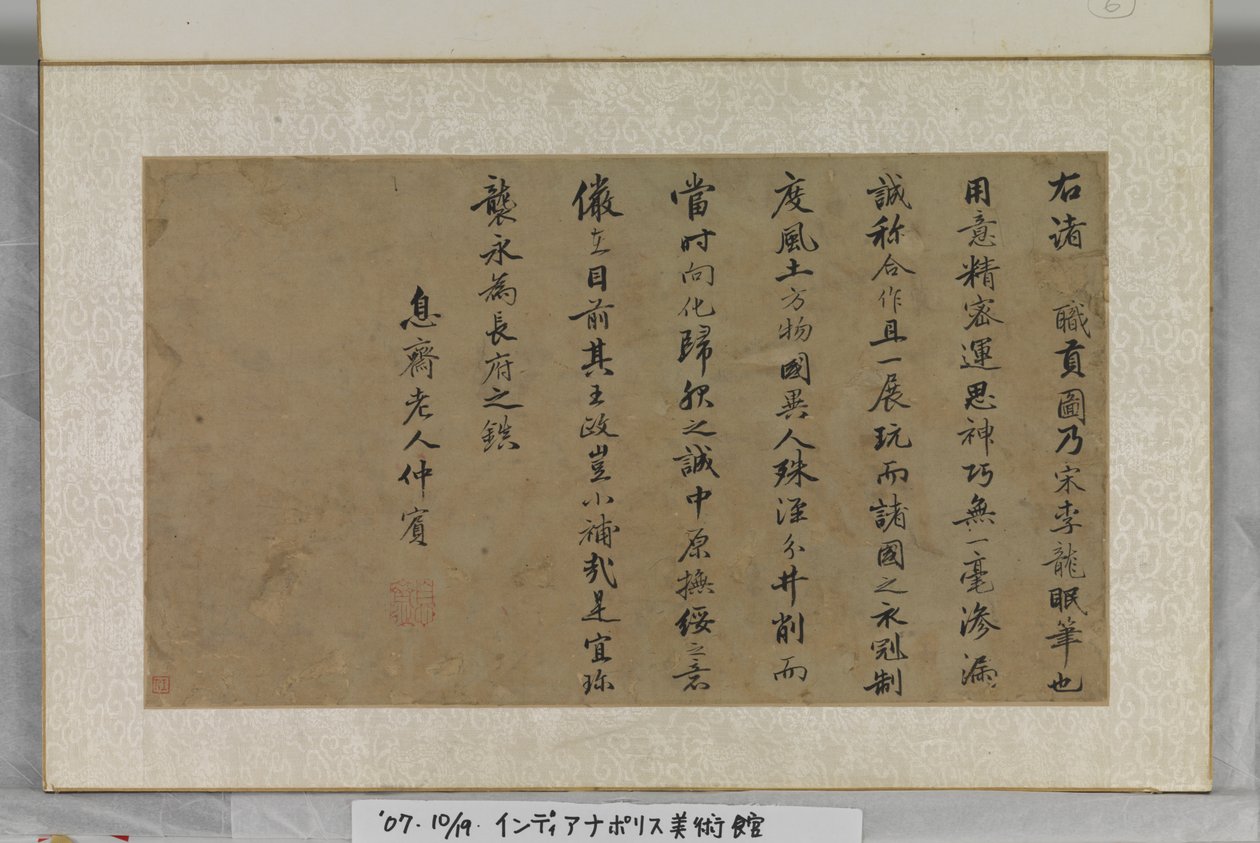 右诸 職貢圖乃宋李龍眠筆也
用意精密運思神巧無一毫滲漏
誠称合作且一展玩而諸國之衣冠制
度風土方物國異人殊涇分井削而
當时向化歸服之誠中原撫綏之意
儼在目前其王政豈小補哉是宜珎
襲永為長府之鎮
息齋老人仲賓
'07.10/19.インディアナポリス美術館
6